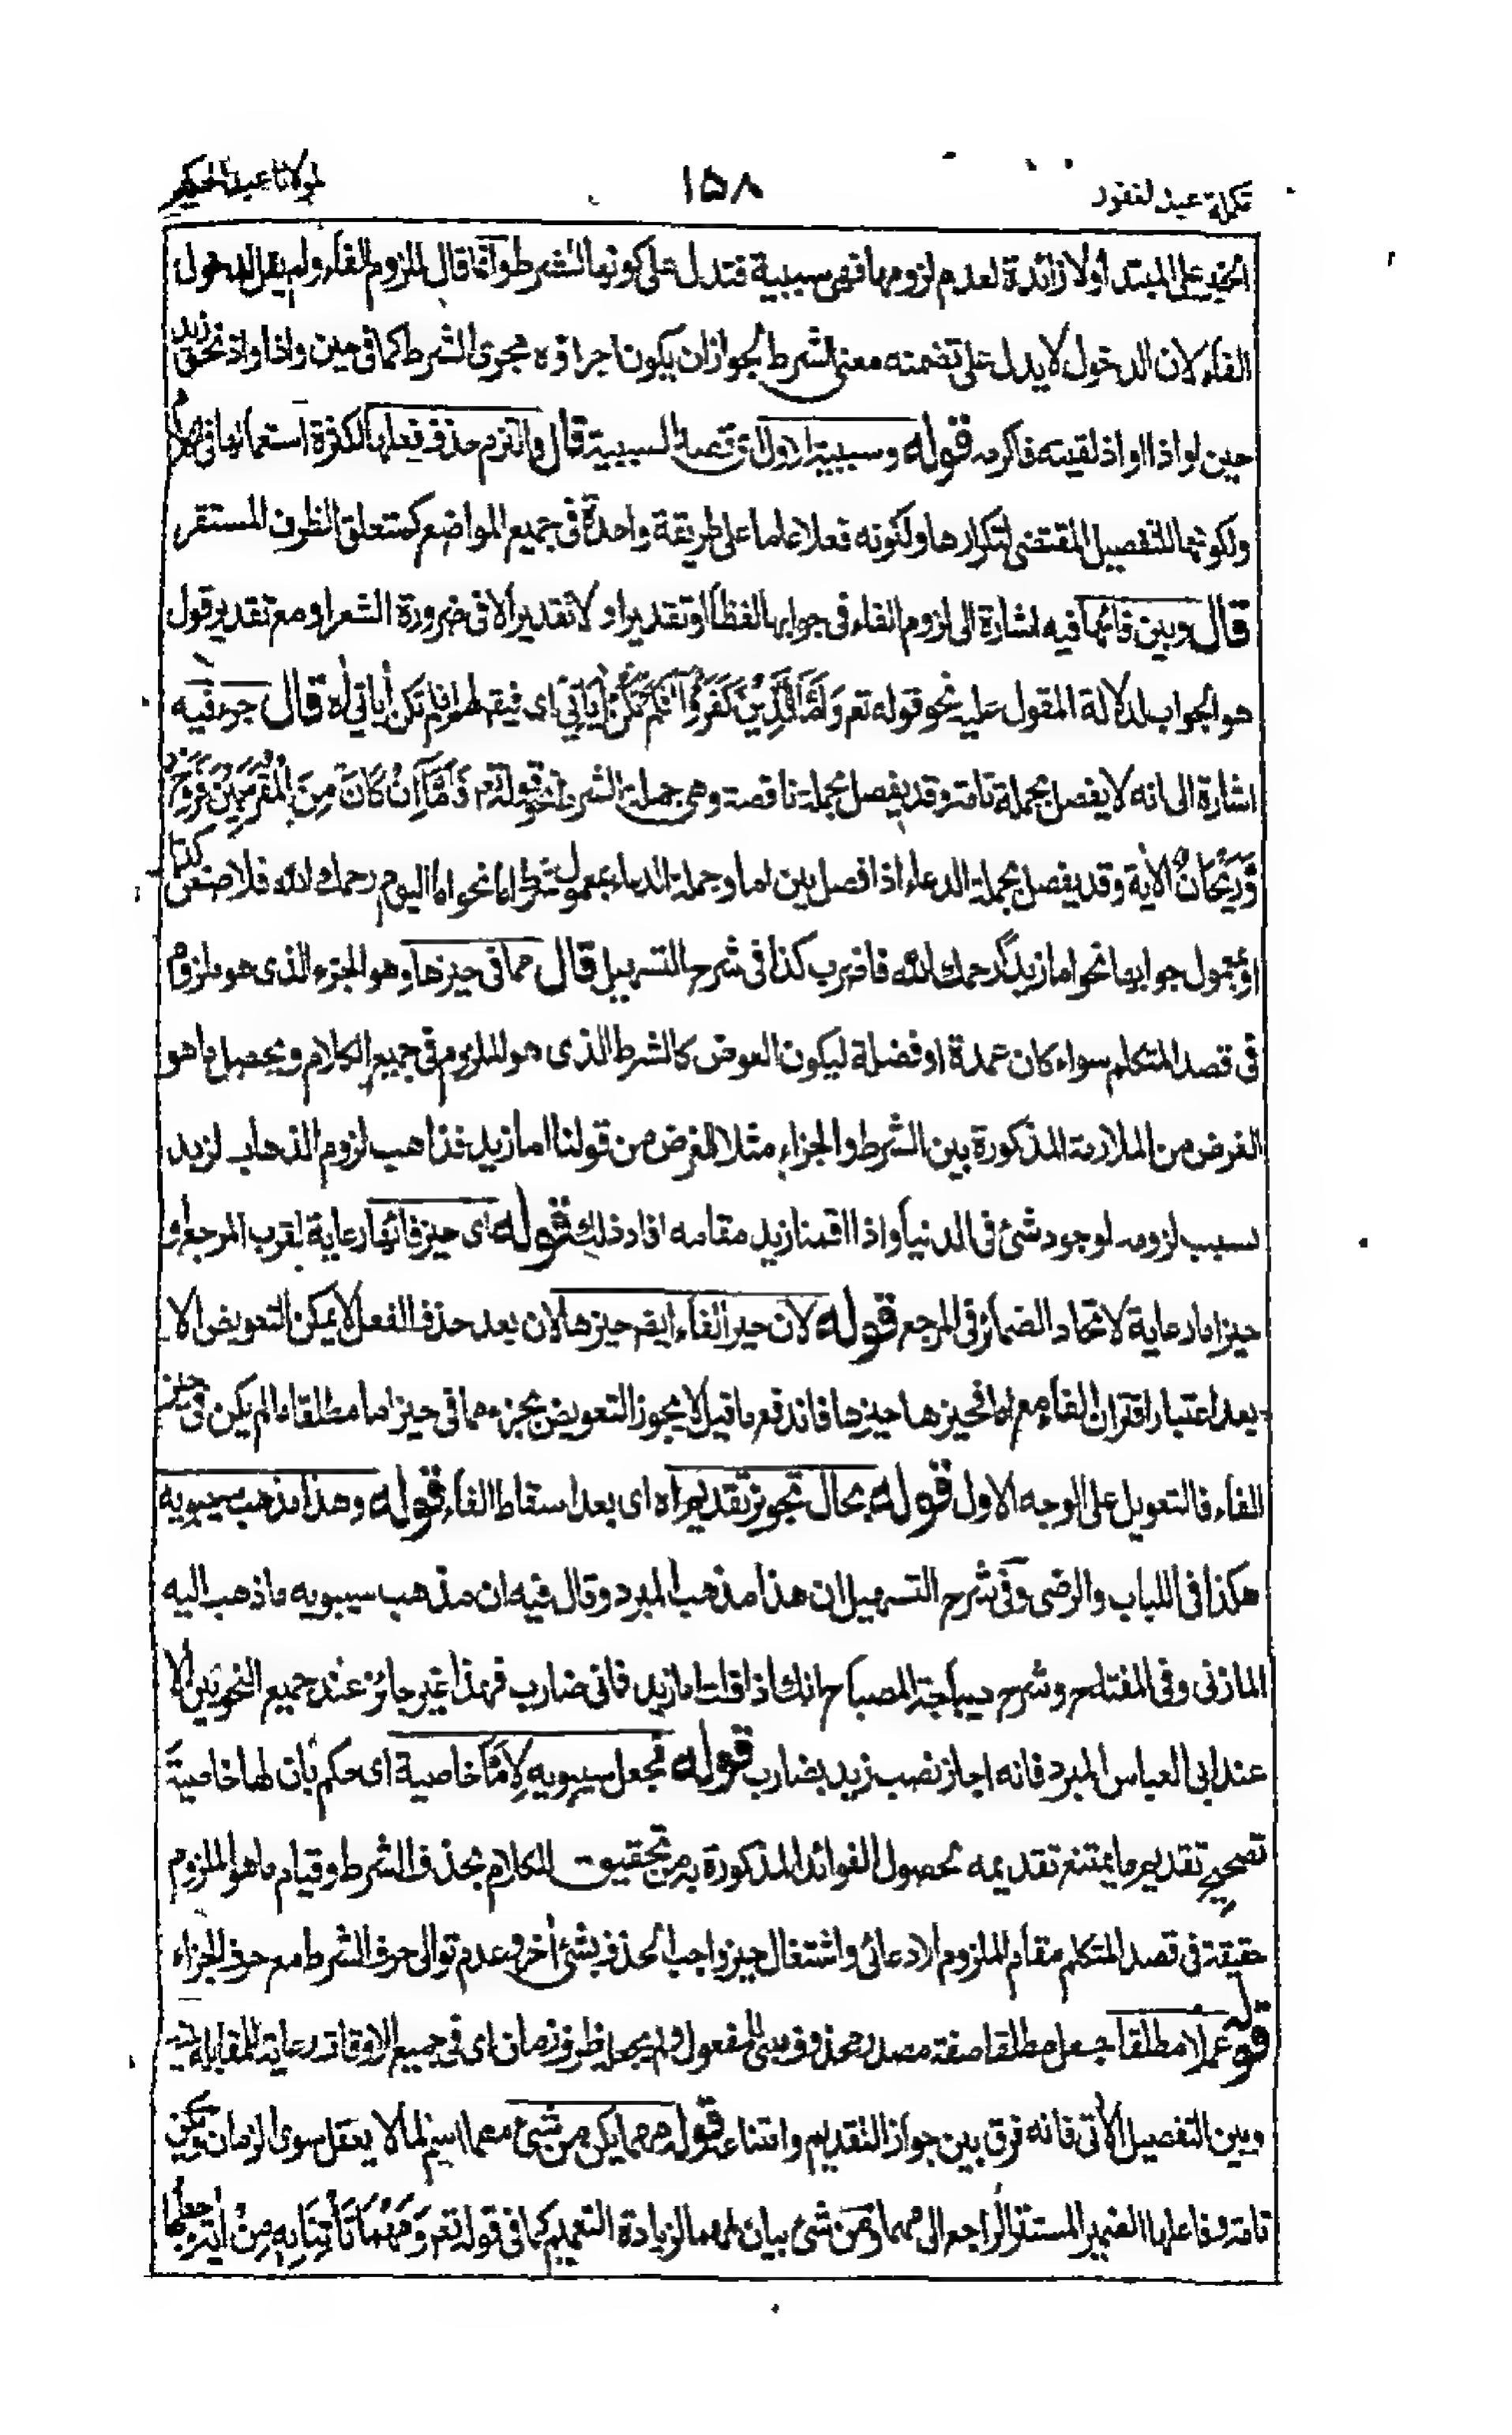 تكملة عبد الغفور ١٥٨ لمولانا عبد الحكيم
الخبر على المبتدأ ولا زائدة لعدم لزومها فهى سببية فتدل على كونها للشرط وانما قال للزوم الفاء ولم يقل لدخول
الفاء لان الدخول لا يدل على تضمنه معنى الشرط لجواز ان يكون اجراؤه مجرى الشرط كما فى حين واذا واذ نحو زيد
حين لو اذا او اذ لقيته فاكرمه قوله وسببية الاول قال والتزم حذف فعلها لكثرة استعمالها فى الكلام
ولكونها للتفصيل المقتضى لتكرارها ولكونه فعلا عاما على طريقة واحدة فى جميع المواضع كمتعلق الظرف المستقر
قال وبين فائها فيه اشارة الى لزوم الفاء فى جوابها لفظا او تقديرا ولا تقدير الا فى ضرورة الشعر او مع تقدير قول
هو الجواب لدلالة المقول عليه نحو قوله تع وَاَمَّا الَّذِيْنَ كَفَرُوْا اَفَلَمْ تَكُنْ اٰيَاتِيْ اى فيقال لهم افلم تكن اٰياتى اه قال جزء فيه
اشارة الى انه لا يفصل بجملة تامة وقد يفصل بجملة ناقصة وهى جملة الشرط نحو قوله تع فَاَمَّا اِنْ كَانَ مِنَ الْمُقَرَّبِيْنَ فَرَوْحٌ
وَّرَيْحَانٌ الاٰية وقد يفصل بجملة الدعاء اذا فصل بين اما وجملة الدعاء بمعمول شرط اما نحو اما اليوم رحمك الله فلا صنعن كذا
او بمعمول جوابها نحو اما زيدا رحمك الله فاضرب كذا فى شرح التسهيل قال مما فى حيزها وهو الجزء الذى هو ملزوم
فى قصد المتكلم سواء كان عمدة او فضلة ليكون العوض كالشرط الذى هو الملزوم فى جميع الكلام ويحصل ما هو
الغرض من الملازمة المذكورة بين الشرط والجزاء مثلا الغرض من قولنا اما زيد فذاهب لزوم الذهاب لزيد
بسبب لزومه لوجود شئ فى الدنيا واذا اقمنا زيد مقامه افاد ذلك قوله اى حيز فائها رعاية لقرب المرجع او
حيز اما رعاية لاتحاد الضمائر فى المرجع قوله لان حيز الفاء ايضا حيزها لان بعد حذف الفعل لا يمكن التعويض الا
بعد اعتبار اقتران الفاء مع اما فحيزها حيزها فاندفع ما قيل لا يجوز التعويض بجزء مما فى حيز اما مطلقا ما لم يكن فى حيز
الفاء فالتعويل على الوجه الاول قوله بحال تجويز تقديم اه اى بعد اسقاط الفاء قوله وهذا مذهب سيبويه
هكذا فى اللباب والرضى وفى شرح التسهيل ان هذا مذهب المبرد وقال فيه ان مذهب سيبويه ما ذهب اليه
المازنى وفى المفتاح وشرح ديباجة المصباح انك اذا قلت اما زيد فانى ضارب فهذا غير جائز عند جميع النحويين الا
عند ابى العباس المبرد فانه اجاز نصب زيد بضارب قوله فجعل سيبويه لِاَمَّا خاصية اى حكم بان لها خاصيةً
تصحيح تقديم ما يمتنع تقديمه لحصول الفوائد المذكورة به من تحقيق الكلام بحذف الشرط وقيام ما هو الملزوم
حقيقة فى قصد المتكلم مقام الملزوم الادعائى واشتغال حيز واجب الحذف بشئ اٰخر وعدم توالى حرف الشرط مع حرف الجزاء
قوله عملا مطلقا جعل مطلقا صفة مصدر محذوف ولم يجعل ظرف زمان اى فى جميع الاوقات رعاية للمقابلة بينه
وبين التفصيل الاٰتى فانه فرق بين جواز التقديم وامتناعه قوله مهما يكن من شئ مهما اسم لما لا يعقل سوى الزمان ويكن
تامة وفاعلها الضمير المستتر الراجع الى مهما ومن شئ بيان لمهما لزيادة التعميم كما فى قوله تع وَمَهْمَا تَأْتِنَا بِهٖ مِنْ اٰيَةٍ